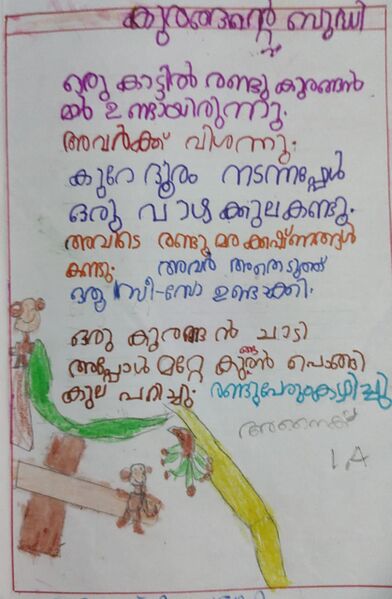 കുരങ്ങന്റെ ബുദ്ധി
ഒരു കാട്ടിൽ രണ്ടു കുരങ്ങൻ
മാർ ഉണ്ടായിരുന്നു.
അവർക്ക് വിശന്നു.
കുറേ ദൂരം നടന്നപ്പേൾ
ഒരു വാഴക്കുല കണ്ടു.
അവിടെ രണ്ടു മരക്കഷ്ണങ്ങൾ
കണ്ടു. അവർ അതെടുത്ത്
ഒരു സീ-സോ ഉണ്ടാക്കി.
ഒരു കുരങ്ങൻ ചാടി
അപ്പോൾ മറ്റേ കുരങ്ങൻ പൊങ്ങി
കുല പറിച്ചു. രണ്ടുപേരുംകഴിച്ചു
1 A